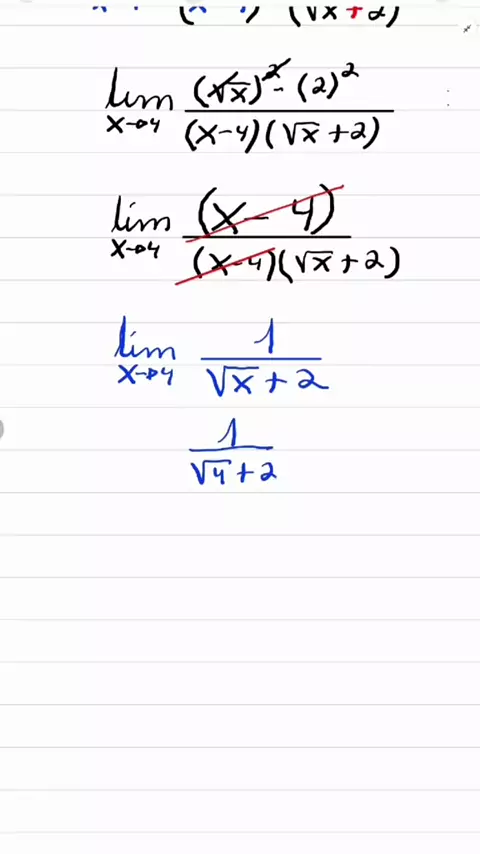 (√x+2)
lim (√x)² - (2)²
x→4 (x-4)(√x+2)
lim (x-4)
x→4 (x-4)(√x+2)
lim 1
x→4 √x+2
1
√4+2